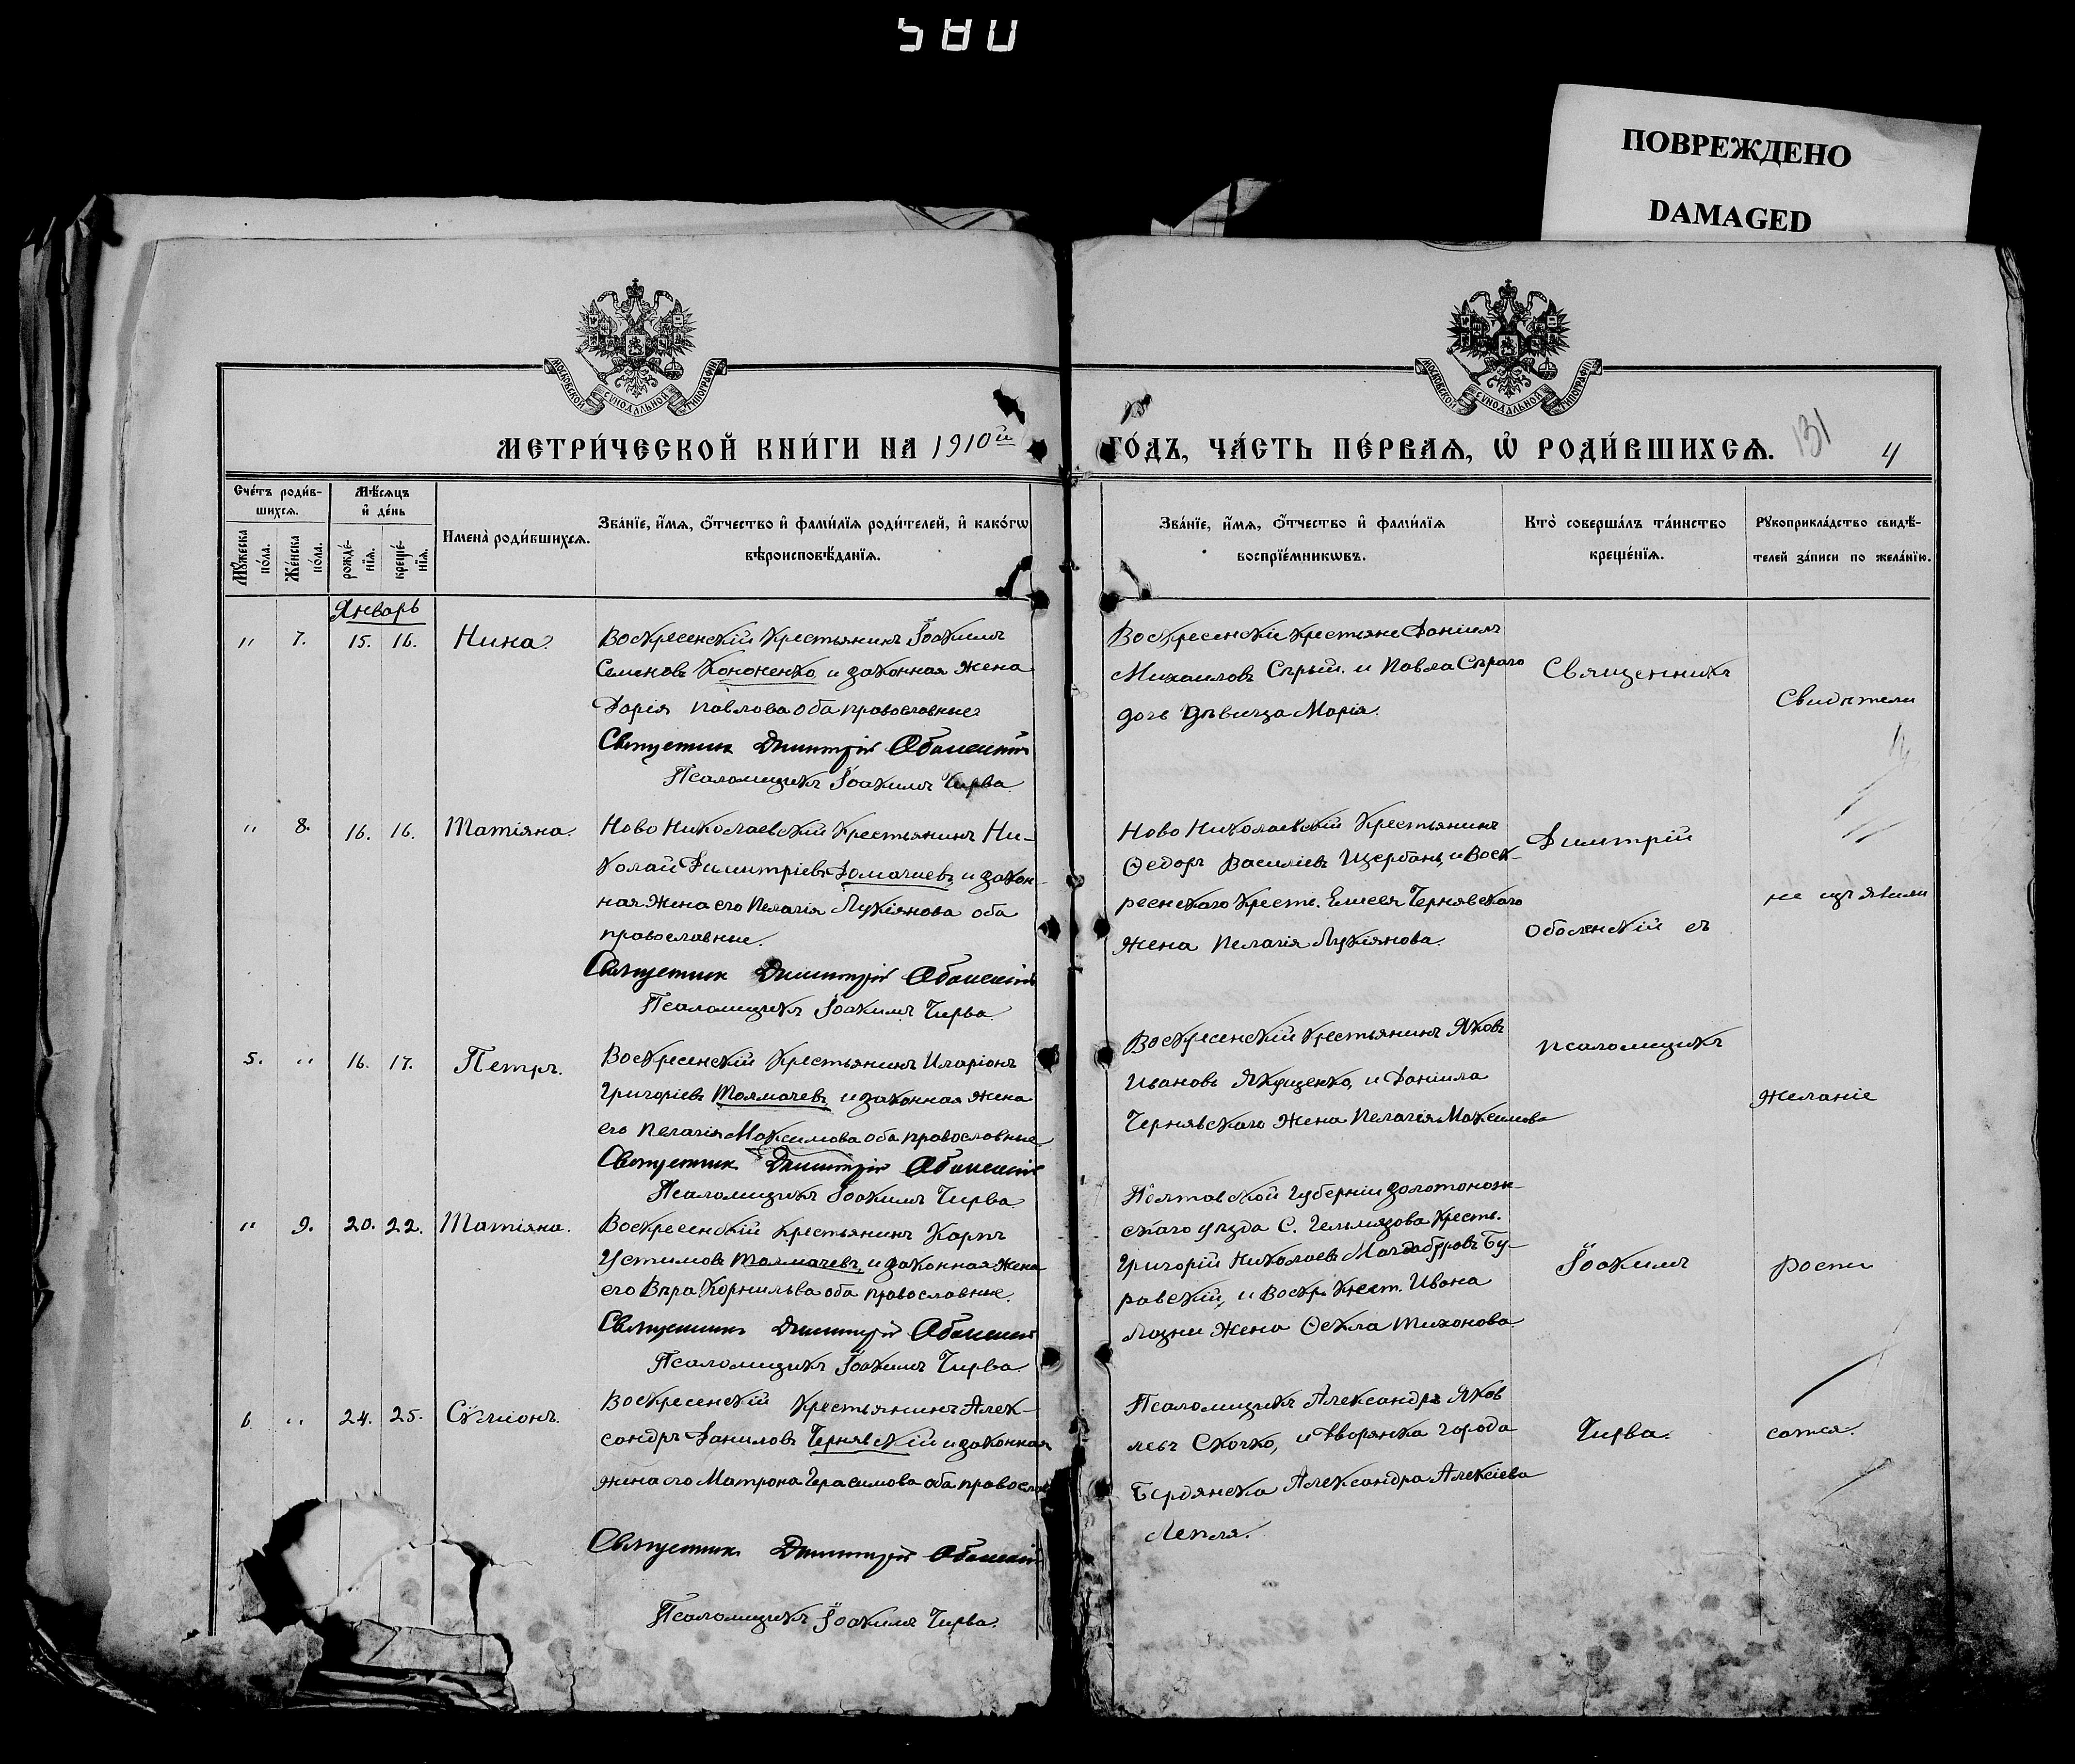 580
ПОВРЕЖДЕНО
DAMAGED
МОСКОВСКОЙ СУНОДАЛЬНОЙ ТИПОГРАФІИ
МОСКОВСКОЙ СУНОДАЛЬНОЙ ТИПОГРАФІИ
МЕТРИ́ЧЕСКОЙ КНИ́ГИ НА 1910й
ГО́ДЪ, ЧА́СТЬ ПЕ́РВАѦ, Ѡ҆ РОДИ́ВШИХСѦ.
131
4
Сче́тъ роди́в-
шихсѧ.
Мꙋ́жеска
по́ла.
Же́нска
по́ла.
Мѣ́сѧцъ
и҆ де́нь
рожде́-
нїѧ.
креще́-
нїѧ.
Имена̀ роди́вшихсѧ.
Зва́нїе, и҆́мѧ, ѻ҆́тчество и҆ фами́лїѧ роди́телей, и҆ како́гѡ
вѣроисповѣ́данїѧ.
Зва́нїе, и҆́мѧ, ѻ҆́тчество и҆ фами́лїѧ
воспрїе́мникѡвъ.
Кто̀ соверша́лъ та́инство
креще́нїѧ.
Рꙋкоприкла́дство свидѣ́-
телей за́писи по жела́нїю.
Январь
" 7. 15. 16. Нина.
Воскресенскій крестьянинъ Іоакимъ
Семеновъ Кононенко и законная жена
Дарія Павлова оба православные
Священникъ Димитрій Оболенскій
Псаломщикъ Іоакимъ Чирва.
Воскресенскіе крестьяне Даніилъ
Михаиловъ Сѣрый. и Павла Сѣраго
дочь дѣвица Марія.
" 8. 16. 16. Татіяна.
Ново Николаевскій крестьянинъ Ни-
колай Димитріевъ Домачиевъ и закон-
ная жена его Пелагія Лукіянова оба
православные.
Священникъ Димитрій Оболенскій
Псаломщикъ Іоакимъ Чирва.
Ново Николаевскій крестьянинъ
Ѳедоръ Василіевъ Щербань, и Воск-
ресенскаго крестъ. Елисея Чернявскаго
жена Пелагія Лукіянова.
5. " 16. 17. Петръ.
Воскресенскій крестьянинъ Иларіонъ
Григоріевъ Толмачевъ и законная жена
его Пелагія Максимова оба православные
Священникъ Димитрій Оболенскій
Псаломщикъ Іоакимъ Чирва.
Воскресенскій крестьянинъ Яковъ
Ивановъ Якущенко, и Даніила
Чернявскаго жена Пелагія Максимова
" 9. 20. 22. Татіяна.
Воскресенскій крестьянинъ Карпъ
Устимовъ Толмачевъ, и законная жена
его Вѣра Корнильва оба православные.
Священникъ Димитрій Оболенскій
Псаломщикъ Іоакимъ Чирва.
Полтавской губерніи Золотонош-
скаго уѣзда С. Гельмязова кресть.
Григорій Николаевъ Бу-
равскій, и Воскр. крест. Ивана
Лазни жена Ѳекла Тихонова
6 " 24. 25. Сѵміонъ.
Воскресенскій крестьянинъ Алек-
сандръ Даниловъ Чернявскій и законная
жена его Матрона Герасимова оба православ
Священникъ Димитрій Оболенскій
Псаломщикъ Іоакимъ Чирва.
Псаломщикъ Александръ Яков
левъ Скочко, и дворянка города
Бердянска Александра Алексіева
Лепля.
Священникъ
Димитрій
Оболенскій съ
псаломщикъ
Іоакимъ
Чирва.
Свидѣтели
не изъявили
желаніе
роспи
сатся.